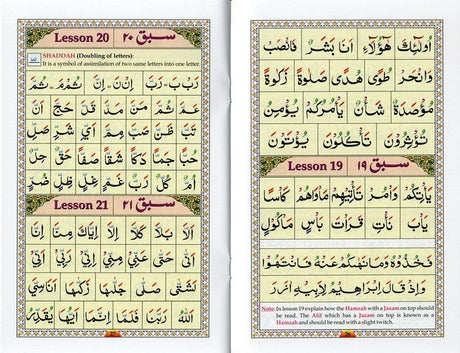 اُولٰٓئِكَ هٰٓؤُلَآءِ اَنَا بَشَرٌ فَانْصَبْ
وَانْحَرْ طُوًى هُدًى صَلٰوةً زَكٰوةً
مُؤْصَدَةٌ شَأْنٍ يَأْمُرُكُمْ يُؤْمِنُ
تُؤْثِرُوْنَ تَأْكُلُوْنَ يُؤْتُوْنَ
Lesson 19 سبق ١٩
يَأْتِكُمْ وَأْمُرْ تَأْتِيْهِمْ مَأْوَاهُمْ كَأْسًا
يَأْبَ نَأْتِ قَرَأْتَ بَأْسٍ مَأْكُوْلٍ
فَخُذُوْهُ وَمَانَهٰىكُمْ عَنْهُ فَانْتَهُوْا
وَاِذْ قَالَ لِاَبِيْهِ
Note: In lesson 19 explain how the Hamzah with a Jazam on top should
be read. The Alif which has a Jazam on top is known as a
Hamzah and should be read with a slight twitch.
Lesson 20 سبق ٢٠
SHADDAH (Doubling of letters):
It is a symbol of assimilation of two same letters into one letter.
رَبْ بَ = رَبَّ اِنْ نَ = اِنَّ ثُمْ مَ = ثُمَّ
عَمَّ ثُمَّ مَنَّ مَدَّ قَدَّ حَجَّ اَنَّ
تَبَّ ظَنَّ صُبَّ مِمَّ اَيِّ شَرِّ صَلِّ
حُبًّا جَمًّا دَكًّا شَقًّا صَفًّا حَقٌّ حِلٌّ
اُمٌّ كُلٌّ رَبٌّ غَمٍّ غِلٍّ ظِلٍّ ضُرٍّ
Lesson 21 سبق ٢١
اِنَّا اَلَّا بَلَّا كَلَّا اِلَّا اِيَّاكَ مِنَّا
اَنّٰى حَتّٰى عَنِّيْ مِنِّيْ اِنِّيْ رَبِّيْ
تَشَقّٰى صَلّٰى جَلّٰهَا زَكّٰهَا اَنَاسِيَّ
اِنَّهَا ثُمَّ لَمَّا اِنَّمَا اَيُّهَا يُقَدِّرُ